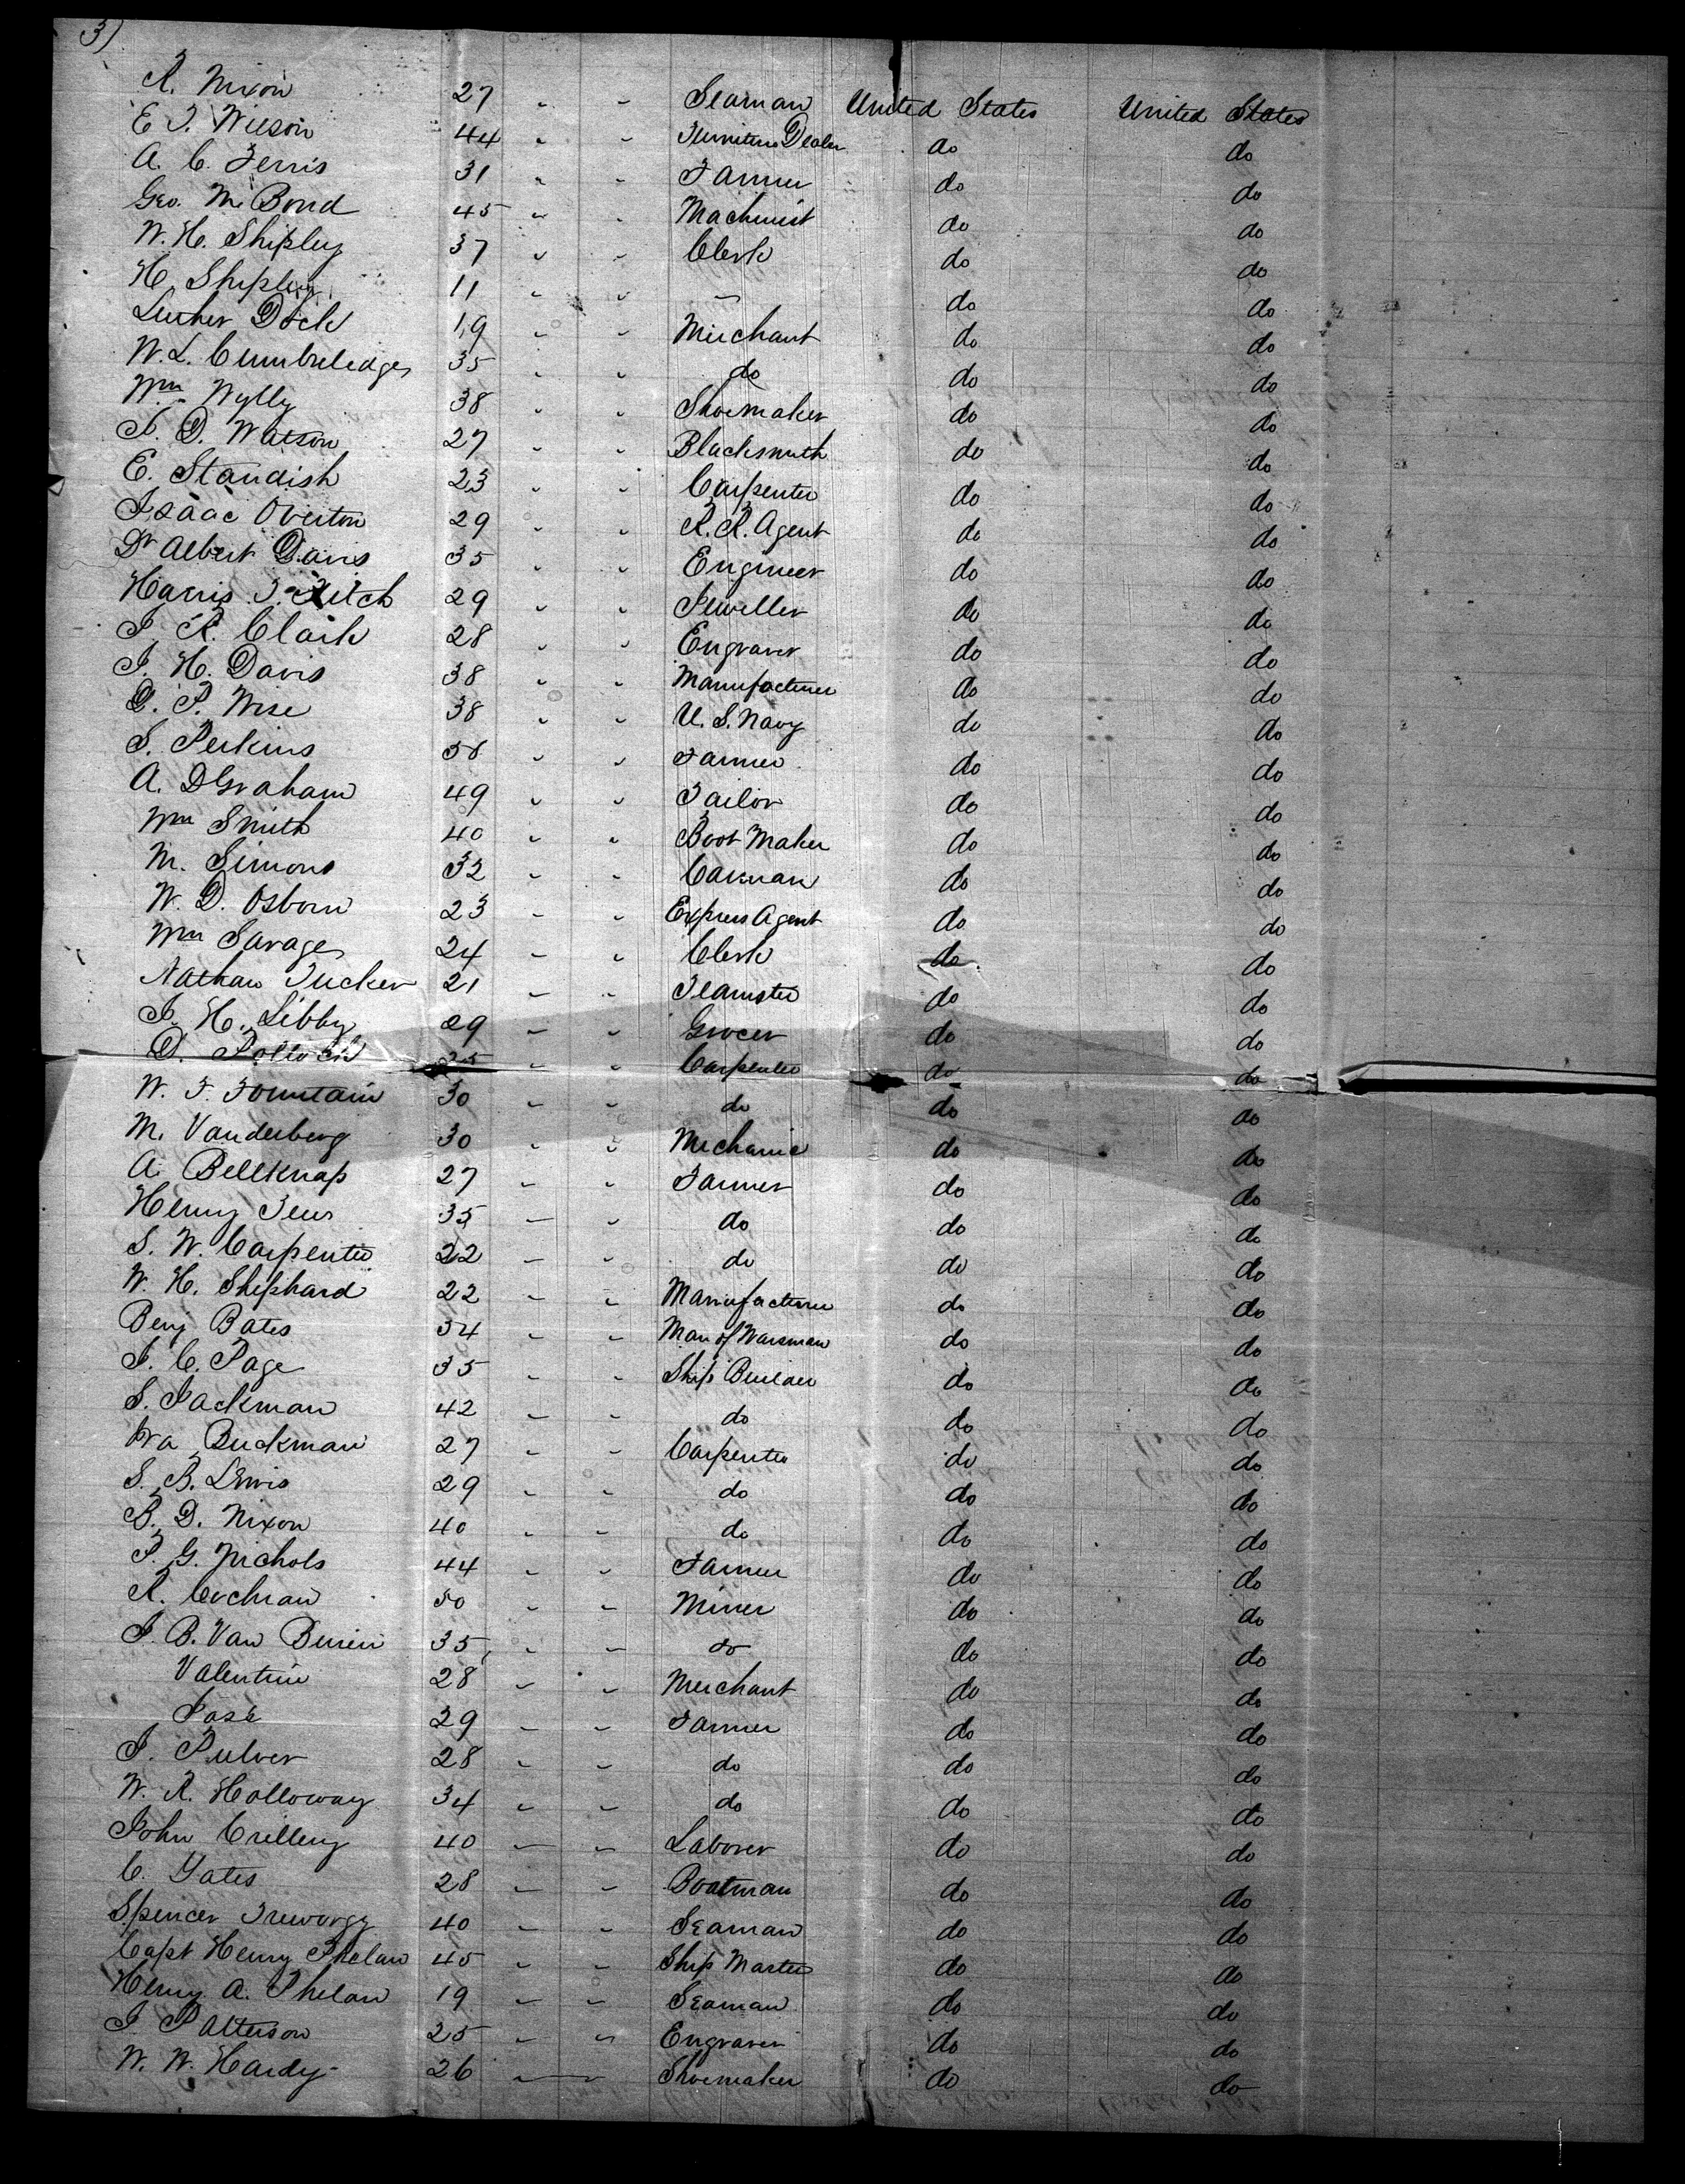 3)
R. Nixon 27 " " Seaman United States United States
E T. Wilson 44 " " Furniture Dealer do do
A. C. Ferris 31 " " Farmer do do
Geo. M. Bond 45 " " Machinist do do
W. H. Shipley 37 " " Clerk do do
H. Shipley 11 " " — do do
Luther Dock 19 " " Merchant do do
W. L. Cumbreledge 35 " " do do do
Wm Wylly 38 " " Shoemaker do do
J. D. Watson 27 " " Blacksmith do do
E. Standish 23 " " Carpenter do do
Isaac Overton 29 " " R. R. Agent do do
Dr Albert Davis 35 " " Engineer do do
Harris T. Fitch 29 " " Jeweller do do
J. R. Clark 28 " " Engraver do do
J. H. Davis 38 " " Manufacturer do do
G. P. Wise 38 " " U. S. Navy do do
S. Perkins " " Farmer do do
A. D Graham 49 " " Tailor do do
Wm Smith 40 " " Boot Maker do do
M. Simons 32 " " Carman do do
W. D. Osborn 23 " " Express Agent do do
Wm Savage 24 " " Clerk do do
Nathan Tucker 21 " " Teamster do do
J. H. Libby 29 " " Grocer do do
D. Pollock 25 " " Carpenter do do
W. F. Fountain 30 " " do do do
M. Vanderberg 30 " " Mechanic do do
A. Bellknap 27 " " Farmer do do
Henry 35 " " do do do
S. W. Carpenter 22 " " do do do
W. H. Shephard 22 " " Manufacturer do do
Benj Bates 34 " " Man of Warsman do do
J. C. Page 35 " " Ship Builder do do
S. Packman 42 " " do do do
Ira Buckman 27 " " Carpenter do do
S. B. Lewis 29 " " do do do
B. D. Nixon 40 " " do do do
P. G. Nichols 44 " " Farmer do do
R. Cochran 50 " " Miner do do
J. B. Van Buren 35 " " do do do
Valentine 28 " " Merchant do do
José 29 " " Farmer do do
J. Pulver 28 " " do do do
W. R. Holloway 34 " " do do do
John Crilley 40 " " Laborer do do
C. Yates 28 " " Boatman do do
Spencer Treworgy 40 " " Seaman do do
Capt Henry Phelan 45 " " Ship Master do do
Henry A. Phelan 19 " " Seaman do do
J Patterson 25 " " Engraver do do
W. W. Hardy 26 " " Shoemaker do do